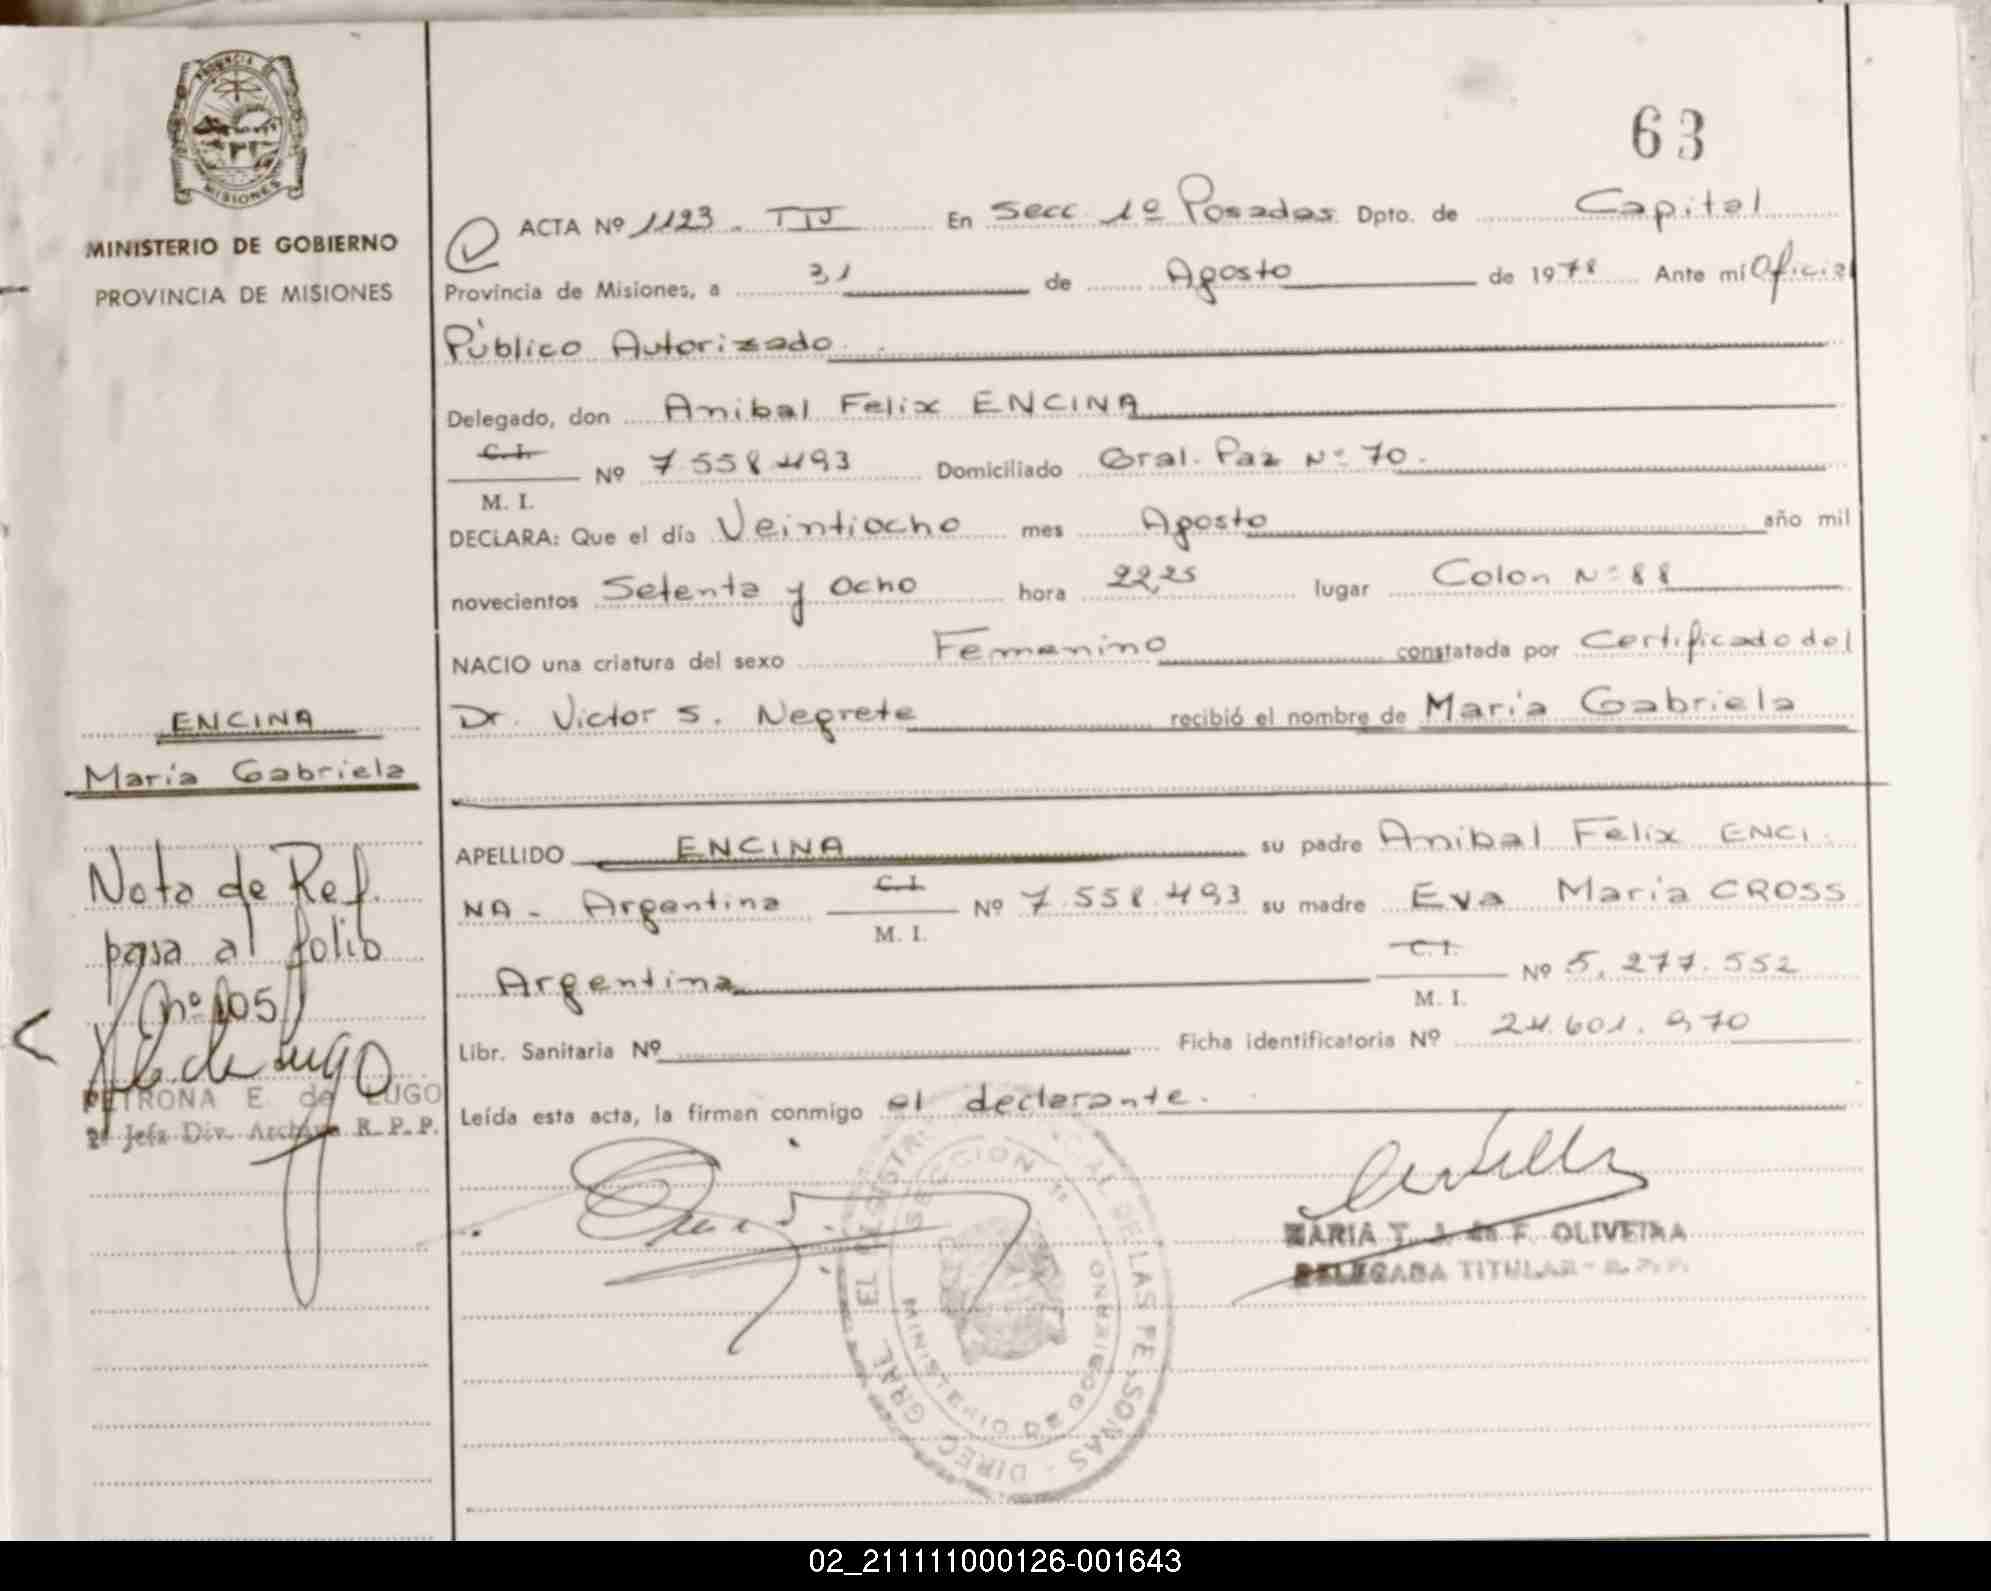 PROVINCIA DE
MISIONES
MINISTERIO DE GOBIERNO
PROVINCIA DE MISIONES
63
ACTA Nº 1123. TIJ En Secc 1º Posadas. Dpto. de Capital
Provincia de Misiones, a 31 de Agosto de 1978 Ante mí Oficial
Público Autorizado.
Delegado, don Anibal Felix ENCINA
C.I.
M. I. Nº 7.558.493 Domiciliado Gral. Paz Nº 70.
DECLARA: Que el día Veintiocho mes Agosto año mil
novecientos Setenta y ocho hora 22,25 lugar Colon Nº 88
NACIO una criatura del sexo Femenino constatada por Certificado del
Dr. Victor S. Negrete recibió el nombre de María Gabriela
APELLIDO ENCINA su padre Anibal Felix ENCI-
NA - Argentina C.I. M. I. Nº 7.558.493 su madre Eva María CROSS
Argentina C.I. M. I. Nº 5.277.552
Libr. Sanitaria Nº Ficha identificatoria Nº 24.601.970
Leída esta acta, la firman conmigo el declarante.
MARIA T. J. de F. OLIVEIRA
DELEGADA TITULAR - R. P. P.
ENCINA
María Gabriela
Nota de Ref.
pasa al folio
nº 105
PETRONA E. de LUGO
2ª Jefa Div. Archivo R. P. P.
SECCION 1ª
MINISTERIO DE GOBIERNO
02_211111000126-001643